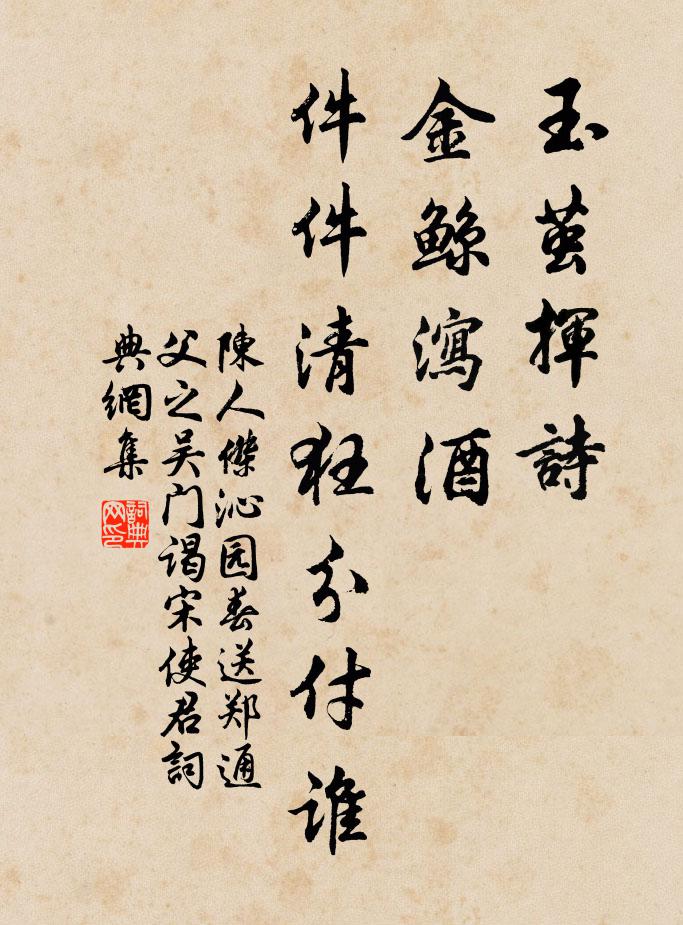 玉茧揮詩
金鲸瀉酒
件件清狂分付誰
陳人傑沁园春送郑通
父之吴门谒宋使君詞
典網集
詞典
网印